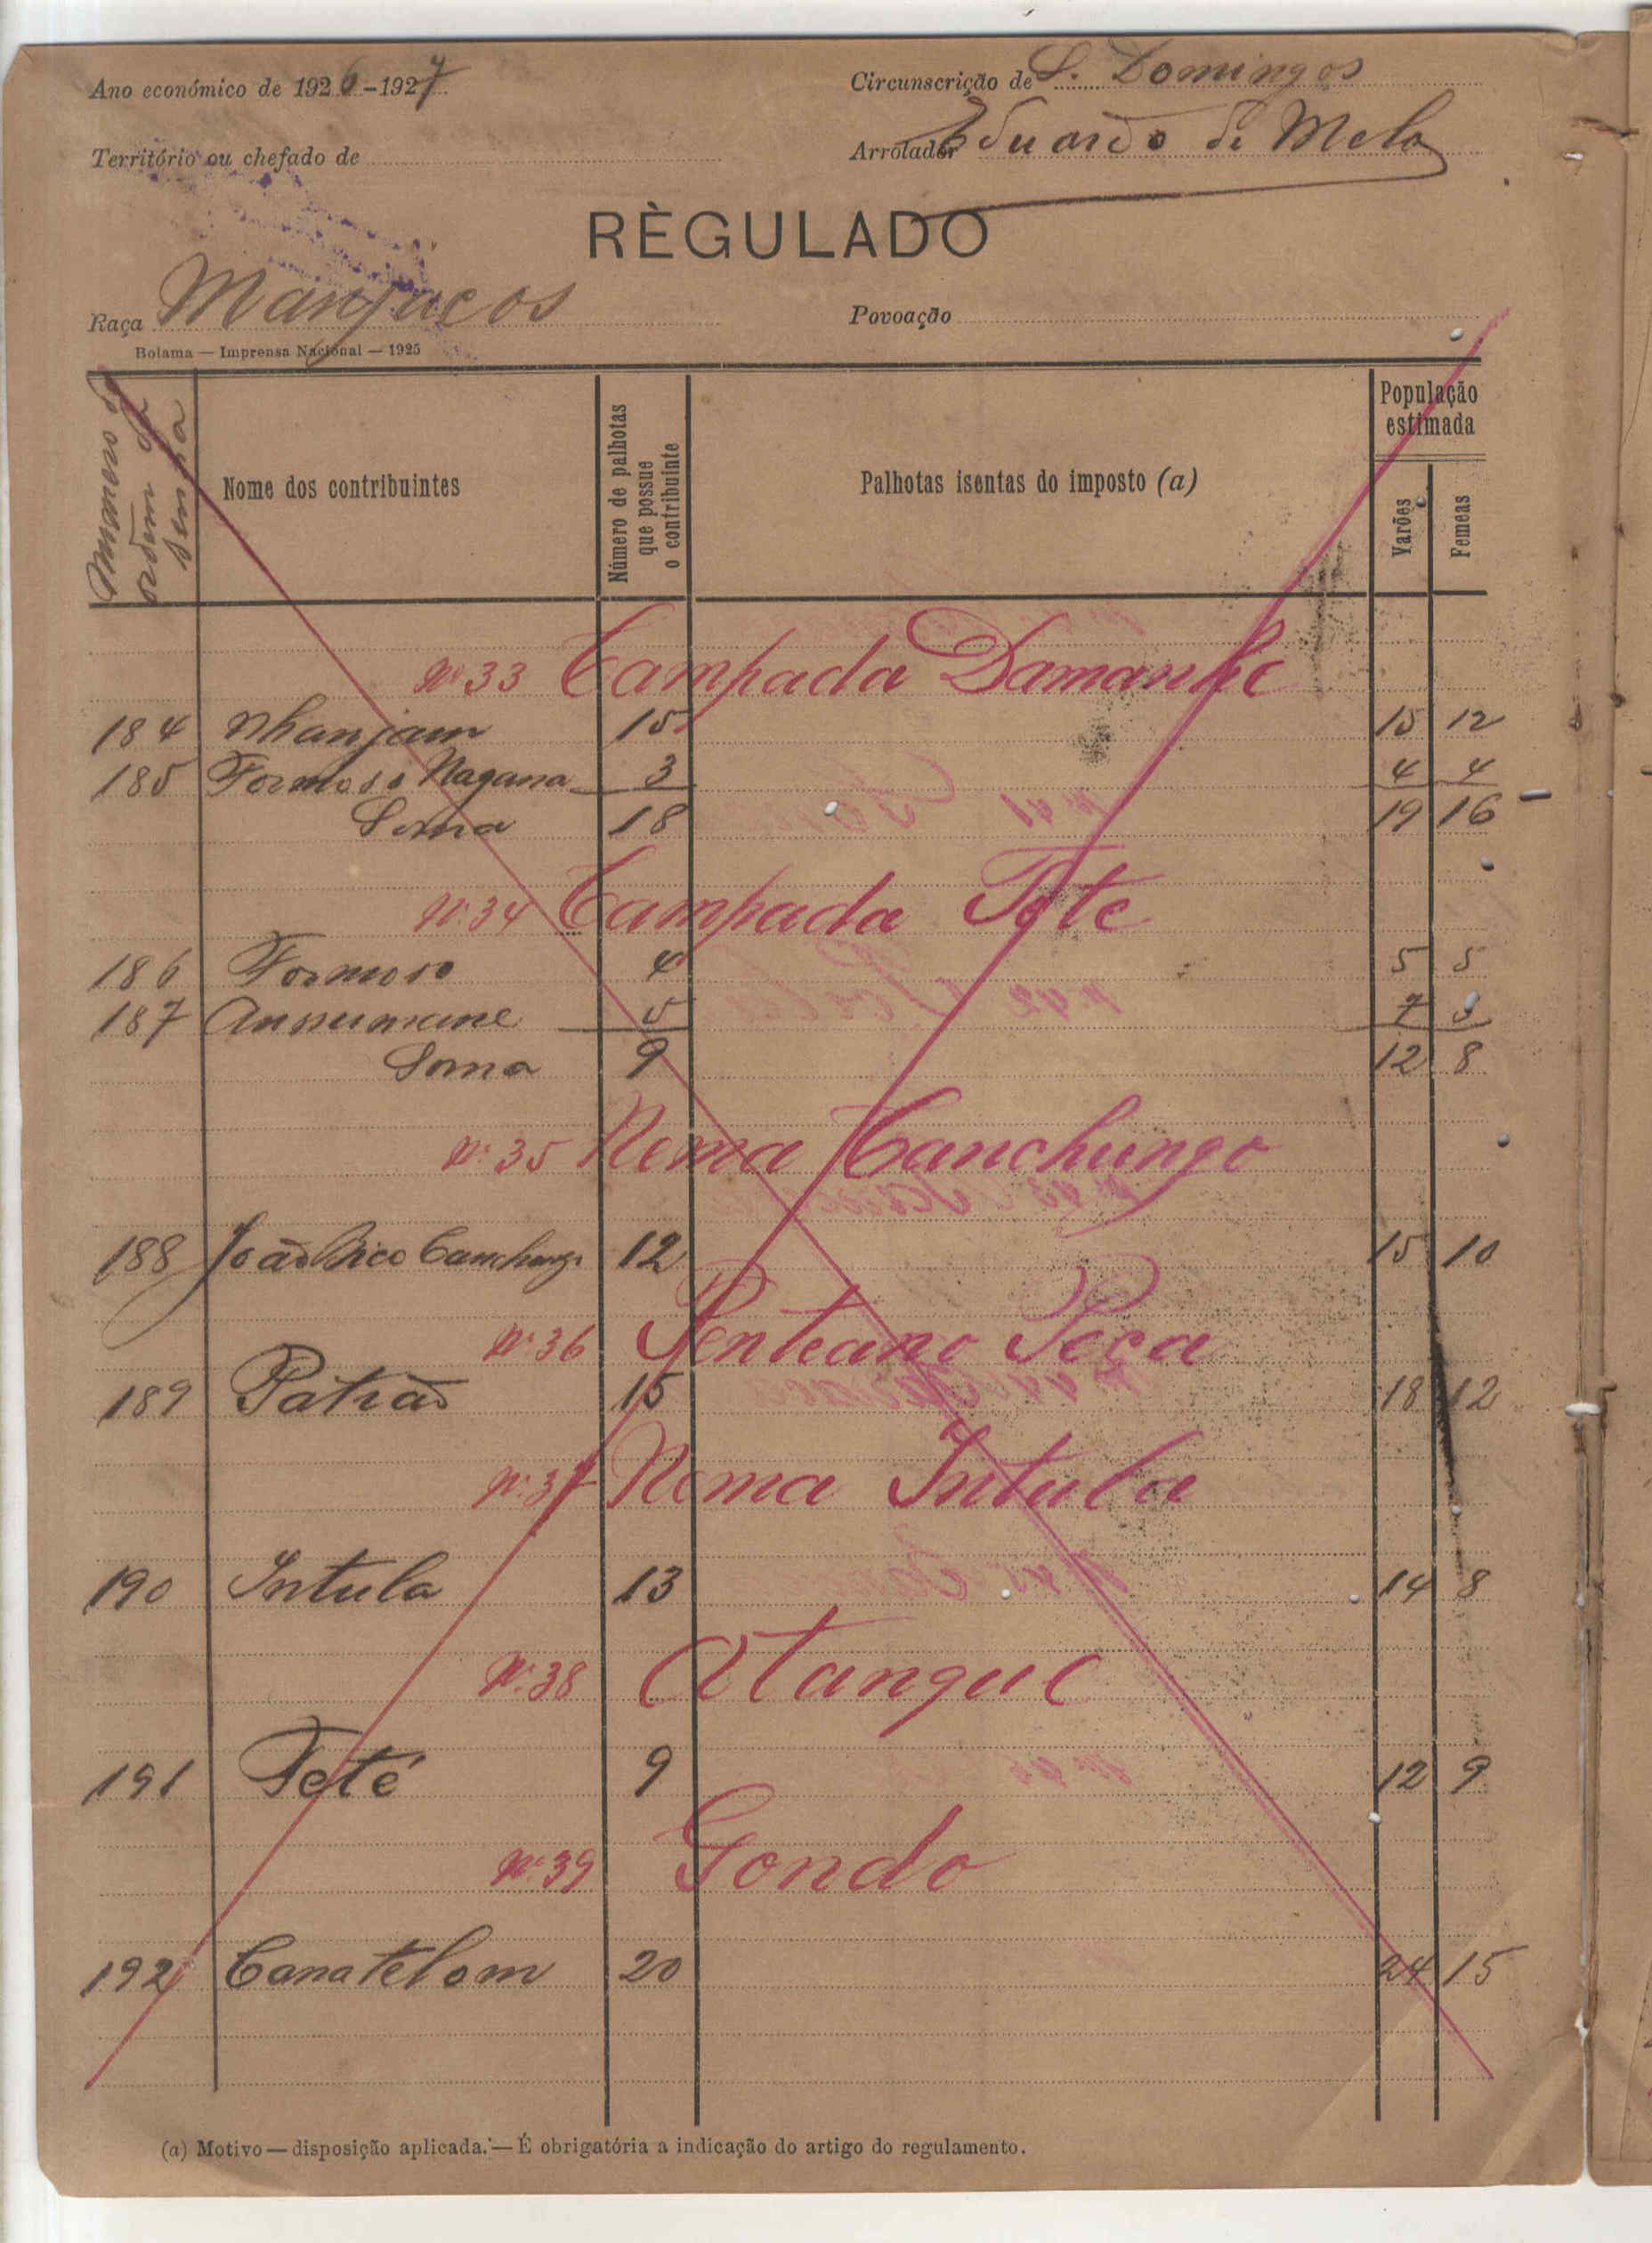 Ano económico de 1926-1927
Circunscrição de S. Domingos
Território ou chefado de
Arrolador Eduardo de Melo
RÈGULADO
Raça Manjacos
Povoação
Bolama — Imprensa Nacional — 1925
Numero de ordem da
Nome dos contribuintes
Número de palhotas que possue o contribuinte
Palhotas isentas do imposto (a)
População estimada
Varões
Femeas
Nº 33 Campada Damanhe
184 Nhanjam 15 15 12
185 Formoso Nagana 3 4 4
Soma 18 19 16
Nº 34 Campada Tete
186 Formoso 4 5 5
187 Anssumane 5 7 3
Soma 9 12 8
Nº 35 Nema Canchungo
188 João Bico Canchungo 12 15 10
Nº 36 Penteano Peca
189 Patrão 15 18 12
Nº 37 Nema Intula
190 Intula 13 14 8
Nº 38 Atangue
191 Teté 9 12 9
Nº 39 Gondo
192 Canatelom 20 24 15
(a) Motivo — disposição aplicada. — É obrigatória a indicação do artigo do regulamento.